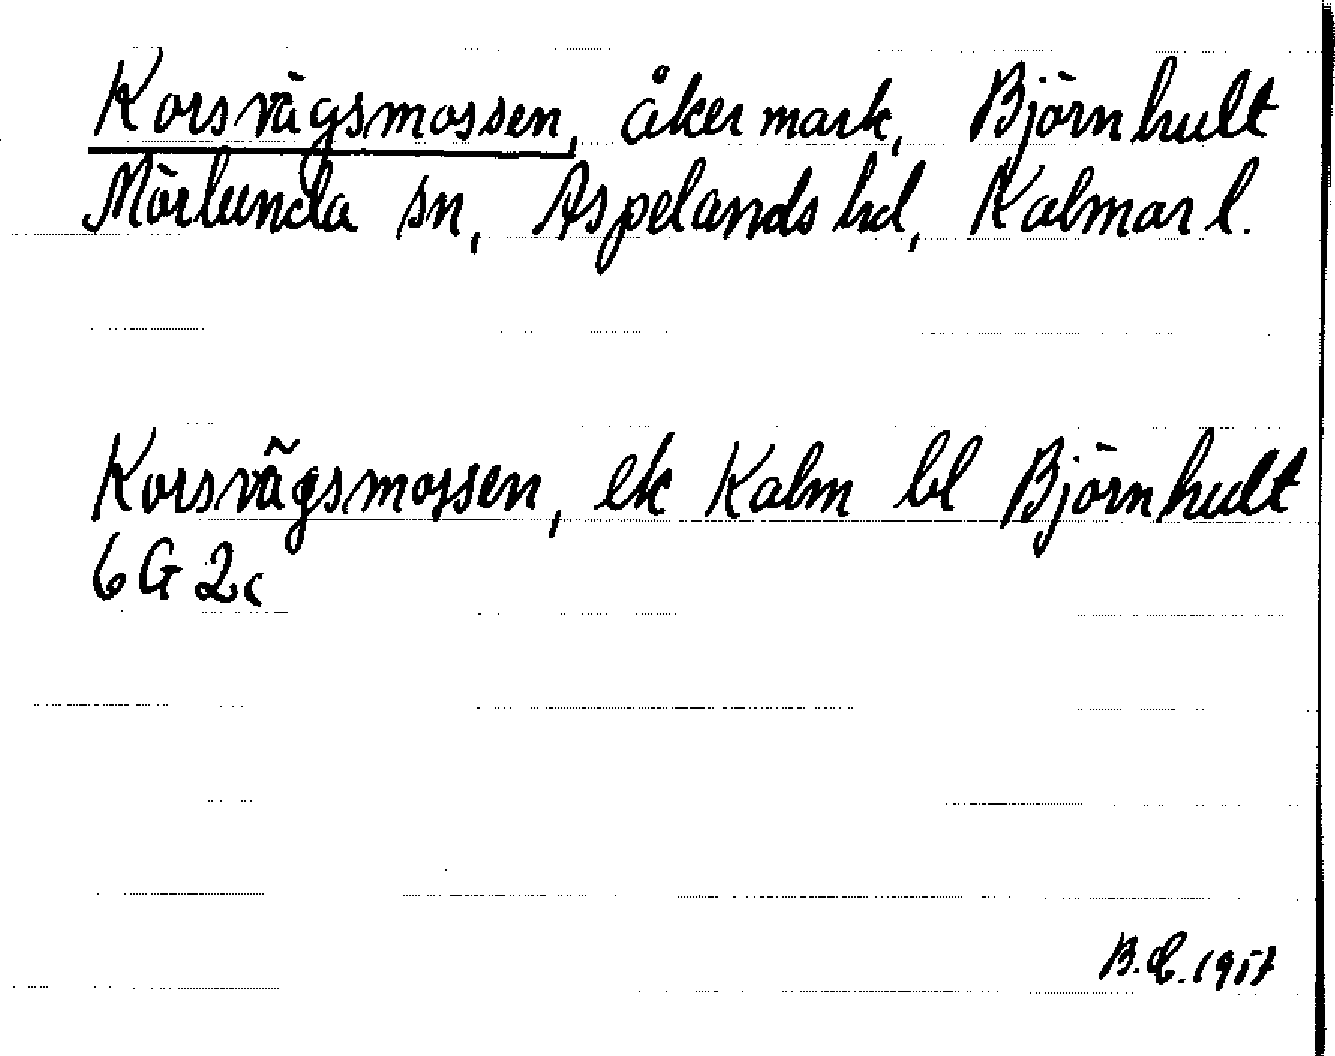 Korsvägsmossen, åkermark, Björnhult
Mörlunda sn, Aspelands hd, Kalmar l.
Korsvägsmossen, ek Kalm bl Björnhult
6G 2c
B.E. 1957